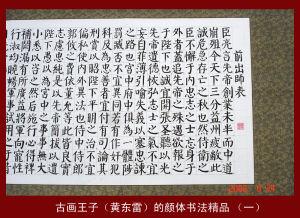 前出師表
臣亮言先帝創業未半而中道
崩殂今天下三分益州疲敝此
誠危急存亡之秋也然侍衛之
臣不懈于內忠志之士忘身于
外者蓋追先帝之殊遇欲報之
于陛下也誠宜開張聖聽以光
先帝遺德恢弘志士之氣不宜
妄自菲薄引喻失義以塞忠諫
之路也宮中府中俱為一體陟
罰臧否不宜異同若有作奸犯
科及為忠善者宜付有司論其
刑賞以昭陛下平明之治不宜
偏私使內外異法也侍中侍郎
郭攸之費禕董允等此皆良實
志慮忠純是以先帝簡拔以遺
陛下愚以為宮中之事事無大
小悉以咨之然後施行必得裨
補闕漏有所廣益將軍向寵性
行淑均曉暢軍事試用之于昔
古画王子（黄东雷）的颜体书法精品（一）